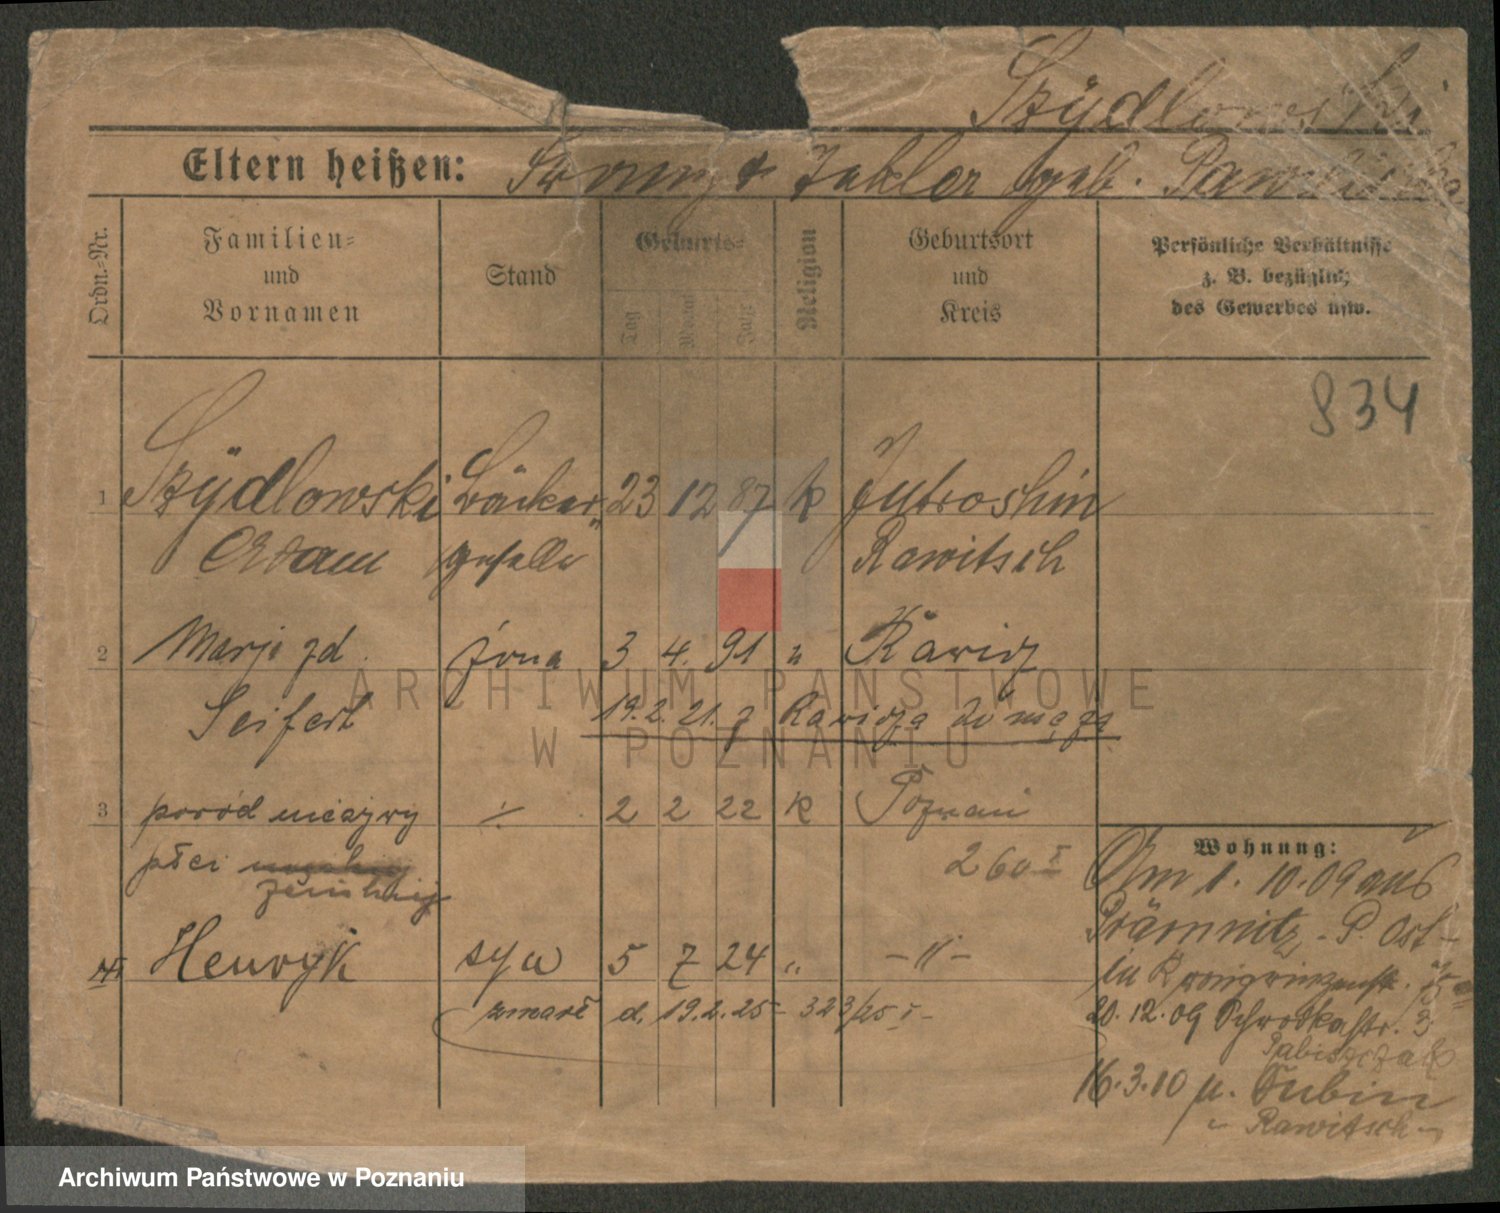 Szÿdlowski
Eltern heißen: geb.
Ordn.-Nr.
Familien-
und
Vornamen
Stand
Geburts-
Tag
Monat
Jahr
Religion
Geburtsort
und
Kreis
Persönliche Verhältnisse
z. B. bezüglich
des Gewerbes usw.
834
1 Szÿdlowski Bäcker- 23 12 87 k Jutroshin
Adam geselle Rawitsch
2 Marja zd. żona 3 4. 91 " Rawicz
Seifert 19.2.21. z Rawicza do męża
3 poród nieżywy ·/· 2 2 22 k Poznań
płci żeńskiej 260 I
Wohnung:
Am 1. 10. 09 aus
P. Ost-
in
4. Henryk syn 5 7 24 " -"-
zmarł d. 19.2.25 - 323/25 I -
20. 12. 09 str. 3
16.3.10 n. Dubin
- Rawitsch -
ARCHIWUM PAŃSTWOWE
W POZNANIU
Archiwum Państwowe w Poznaniu